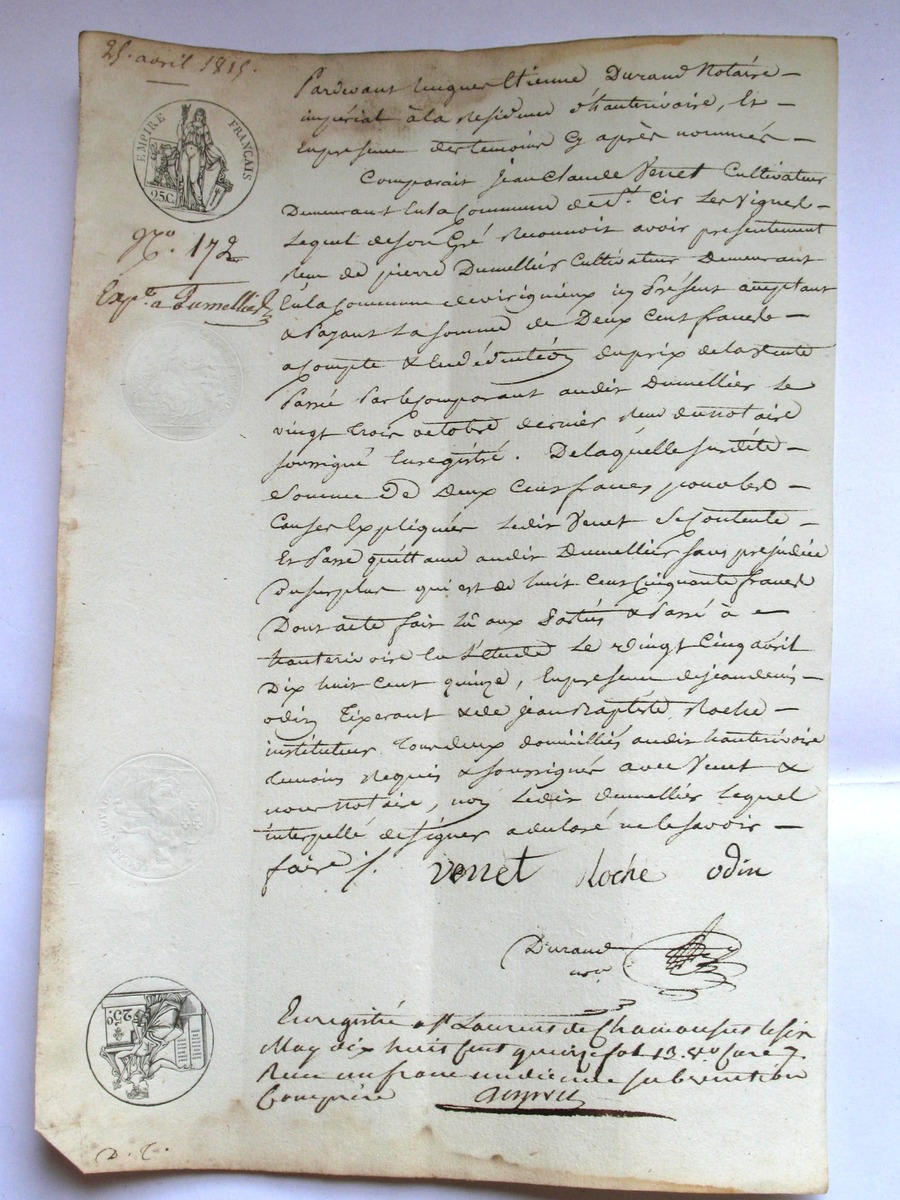 25. avril 1815.
EMPIRE FRANÇAIS
25.C.
No. 172
Exp.te a Dumellier
Pardevant hugues Etienne Durand Notaire
impérial à la Residence d'hauterivoire, Et
En presence des temoins Cy après nommés
Comparait Jean Claude Venet Cultivateur
Demeurant En la Commune de St. Cir Les Vignes
Lequel de son Gré Reconnoit avoir presentement
Reçu de pierre Dumellier Cultivateur Demeurant
En la Commune de virignieux icy Présent acceptant
a Payant La somme de Deux Cent francs
a Compte & En déduction du prix de la Vente
Passée Par le Comparant audit Dumellier Le
vingt trois octobre dernier Reçu du notaire
soussigné Enregistré. De laquelle susdite
Somme De Deux Cent francs pour les
Causes Expliquées Ledit Venet Se Contente
Et Passe quittance audit Dumellier sans prejudice
Du surplus qui est de huit Cent Cinquante francs
Dont acte fait Lû aux Parties & Passé à
hauterivoire En L'Etude Le vingt Cinq avril
Dix huit Cent quinze, En presence de jean denis
odin Tixerant & de jean Baptiste Roche
instituteur Tous deux domiciliés audit hauterivoire
temoins Requis & soussignés avec Venet &
nous Notaire, non Ledit Dumellier Lequel
interpellé de signer a declaré ne le savoir
faire /.
Venet Roche odin
Durand
nore
Enregistré a St Laurent de Chamousset le six
May dix huit Cent quinze fol 13. vo Case 7
Reçu un franc un dixieme subvention
Comprise
25.C
D. C.